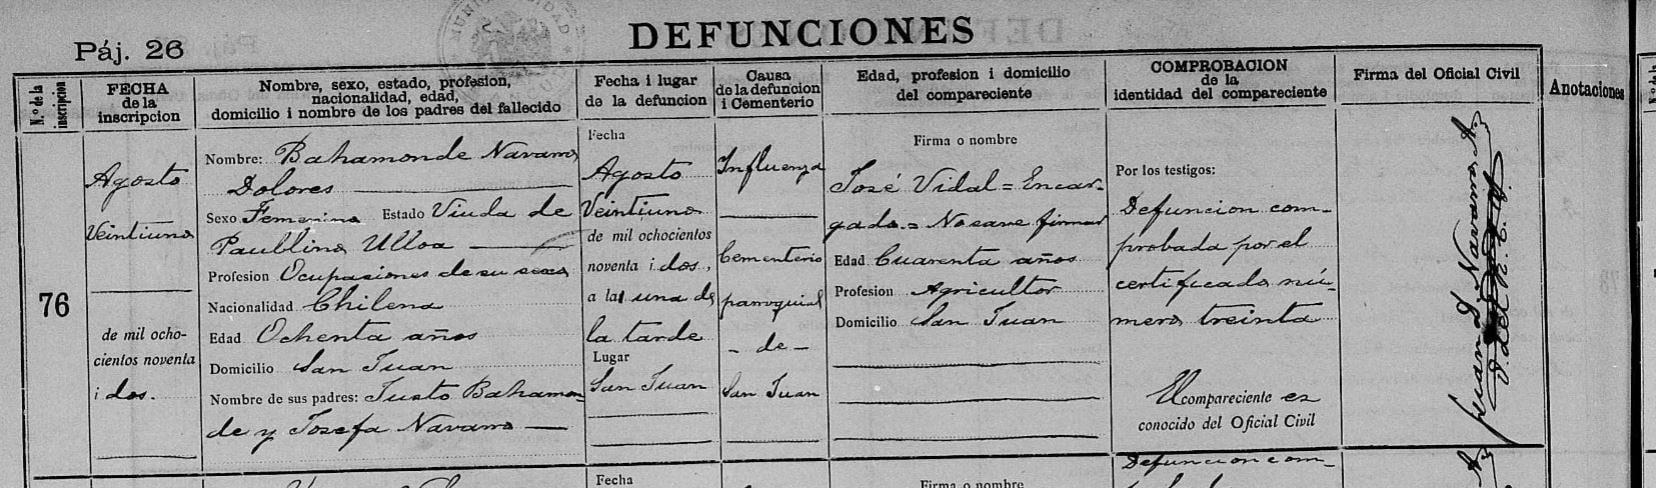 MUNICIPALIDAD
Páj. 26
DEFUNCIONES
N.º de la inscripcion
FECHA
de la
inscripcion
Nombre, sexo, estado, profesion,
nacionalidad, edad,
domicilio i nombre de los padres del fallecido
Fecha i lugar
de la defuncion
Causa
de la defuncion
i Cementerio
Edad, profesion i domicilio
del compareciente
COMPROBACION
de la
identidad del compareciente
Firma del Oficial Civil
Anotaciones
76
Agosto
Veintiuno
de mil ocho-
cientos noventa
i dos.
Nombre: Bahamonde Navarro
Dolores
Sexo Femenino Estado Viuda de
Paublino Ulloa
Profesion Ocupaciones de su sexo
Nacionalidad Chilena
Edad Ochenta años
Domicilio San Juan
Nombre de sus padres: Justo Bahamon
de y Josefa Navarro
Fecha
Agosto
Veintiuno
de mil ochocientos
noventa i dos,
a la una de
la tarde
Lugar
San Juan
Influenza
Cementerio
parroquial
- de -
San Juan
Firma o nombre
José Vidal = Encar-
gado = No save firmar
Edad Cuarenta años
Profesion Agricultor
Domicilio San Juan
Por los testigos:
Defuncion com-
probada por el
certificado nú-
mero treinta
El compareciente es
conocido del Oficial Civil
Juan D. Navarro A.
Fecha
Firma o nombre
Defuncion com-